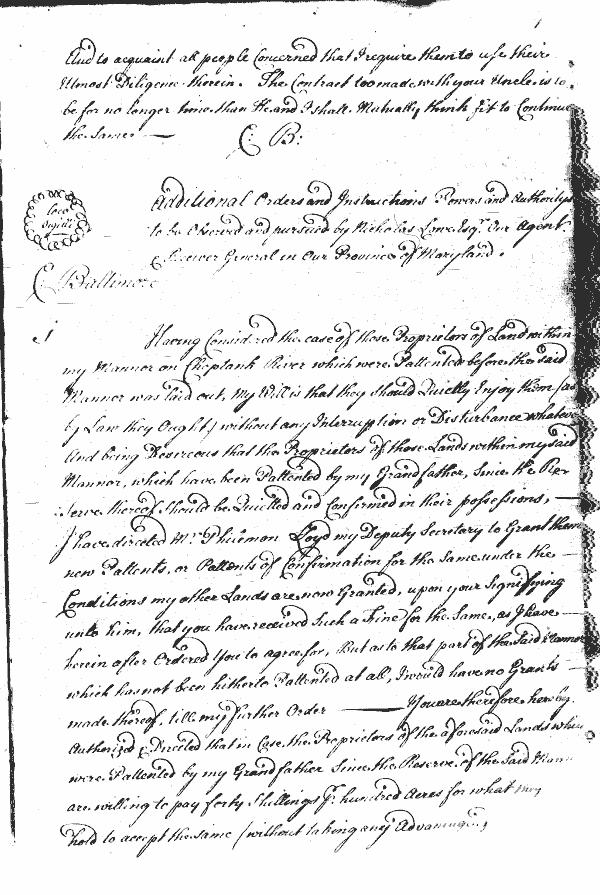 And to acquaint all people Concerned that I require them to use their
Utmost Diligence therein. The Contract too made with your Uncle is to
be for no longer time than He and I shall Mutually think fit to Continue
the Same —
C: B:
Additional Orders and Instructions Powers and Authoritys
to be Observed and pursued by Nicholas Lowe Esqr. Our Agent
Receiver General in Our Province of Maryland.
Loco
Sigilli
C Baltimore
1
Having Considered the case of those Proprietors of Land within
my Mannor on Choptank River which were Pattented before the said
Mannor was laid out, My Will is that they should Quietly Enjoy them (as
by Law they Ought) without any Interruption or Disturbance whatever
And being Desireous that the Proprietors of those Lands within my said
Mannor, which have been Pattented by my Grandfather, Since the Re
serve thereof should be Quietted and Confirmed in their possessions, —
I have directed Mr. Philemon Loyd my Deputy Secretary to Grant them
new Pattents, or Pattents of Confirmation for the Same under the —
Conditions my other Lands are now Granted, upon your Signifying
unto him, that you have received Such a Fine for the Same, as I have
herein after Ordered You to agree for, But as to that part of the Said Mannor
which has not been hitherto Pattented at all, I would have no Grants —
made thereof, till my further Order —— You are therefore hereby
Authorized & Directed that in Case the Proprietors of the aforesaid Lands which
were Pattented by my Grandfather Since the Reserve of the Said Mann
are willing to pay forty Shillings pr. hundred Acres for what they
hold to accept the Same (without taking any Advantage